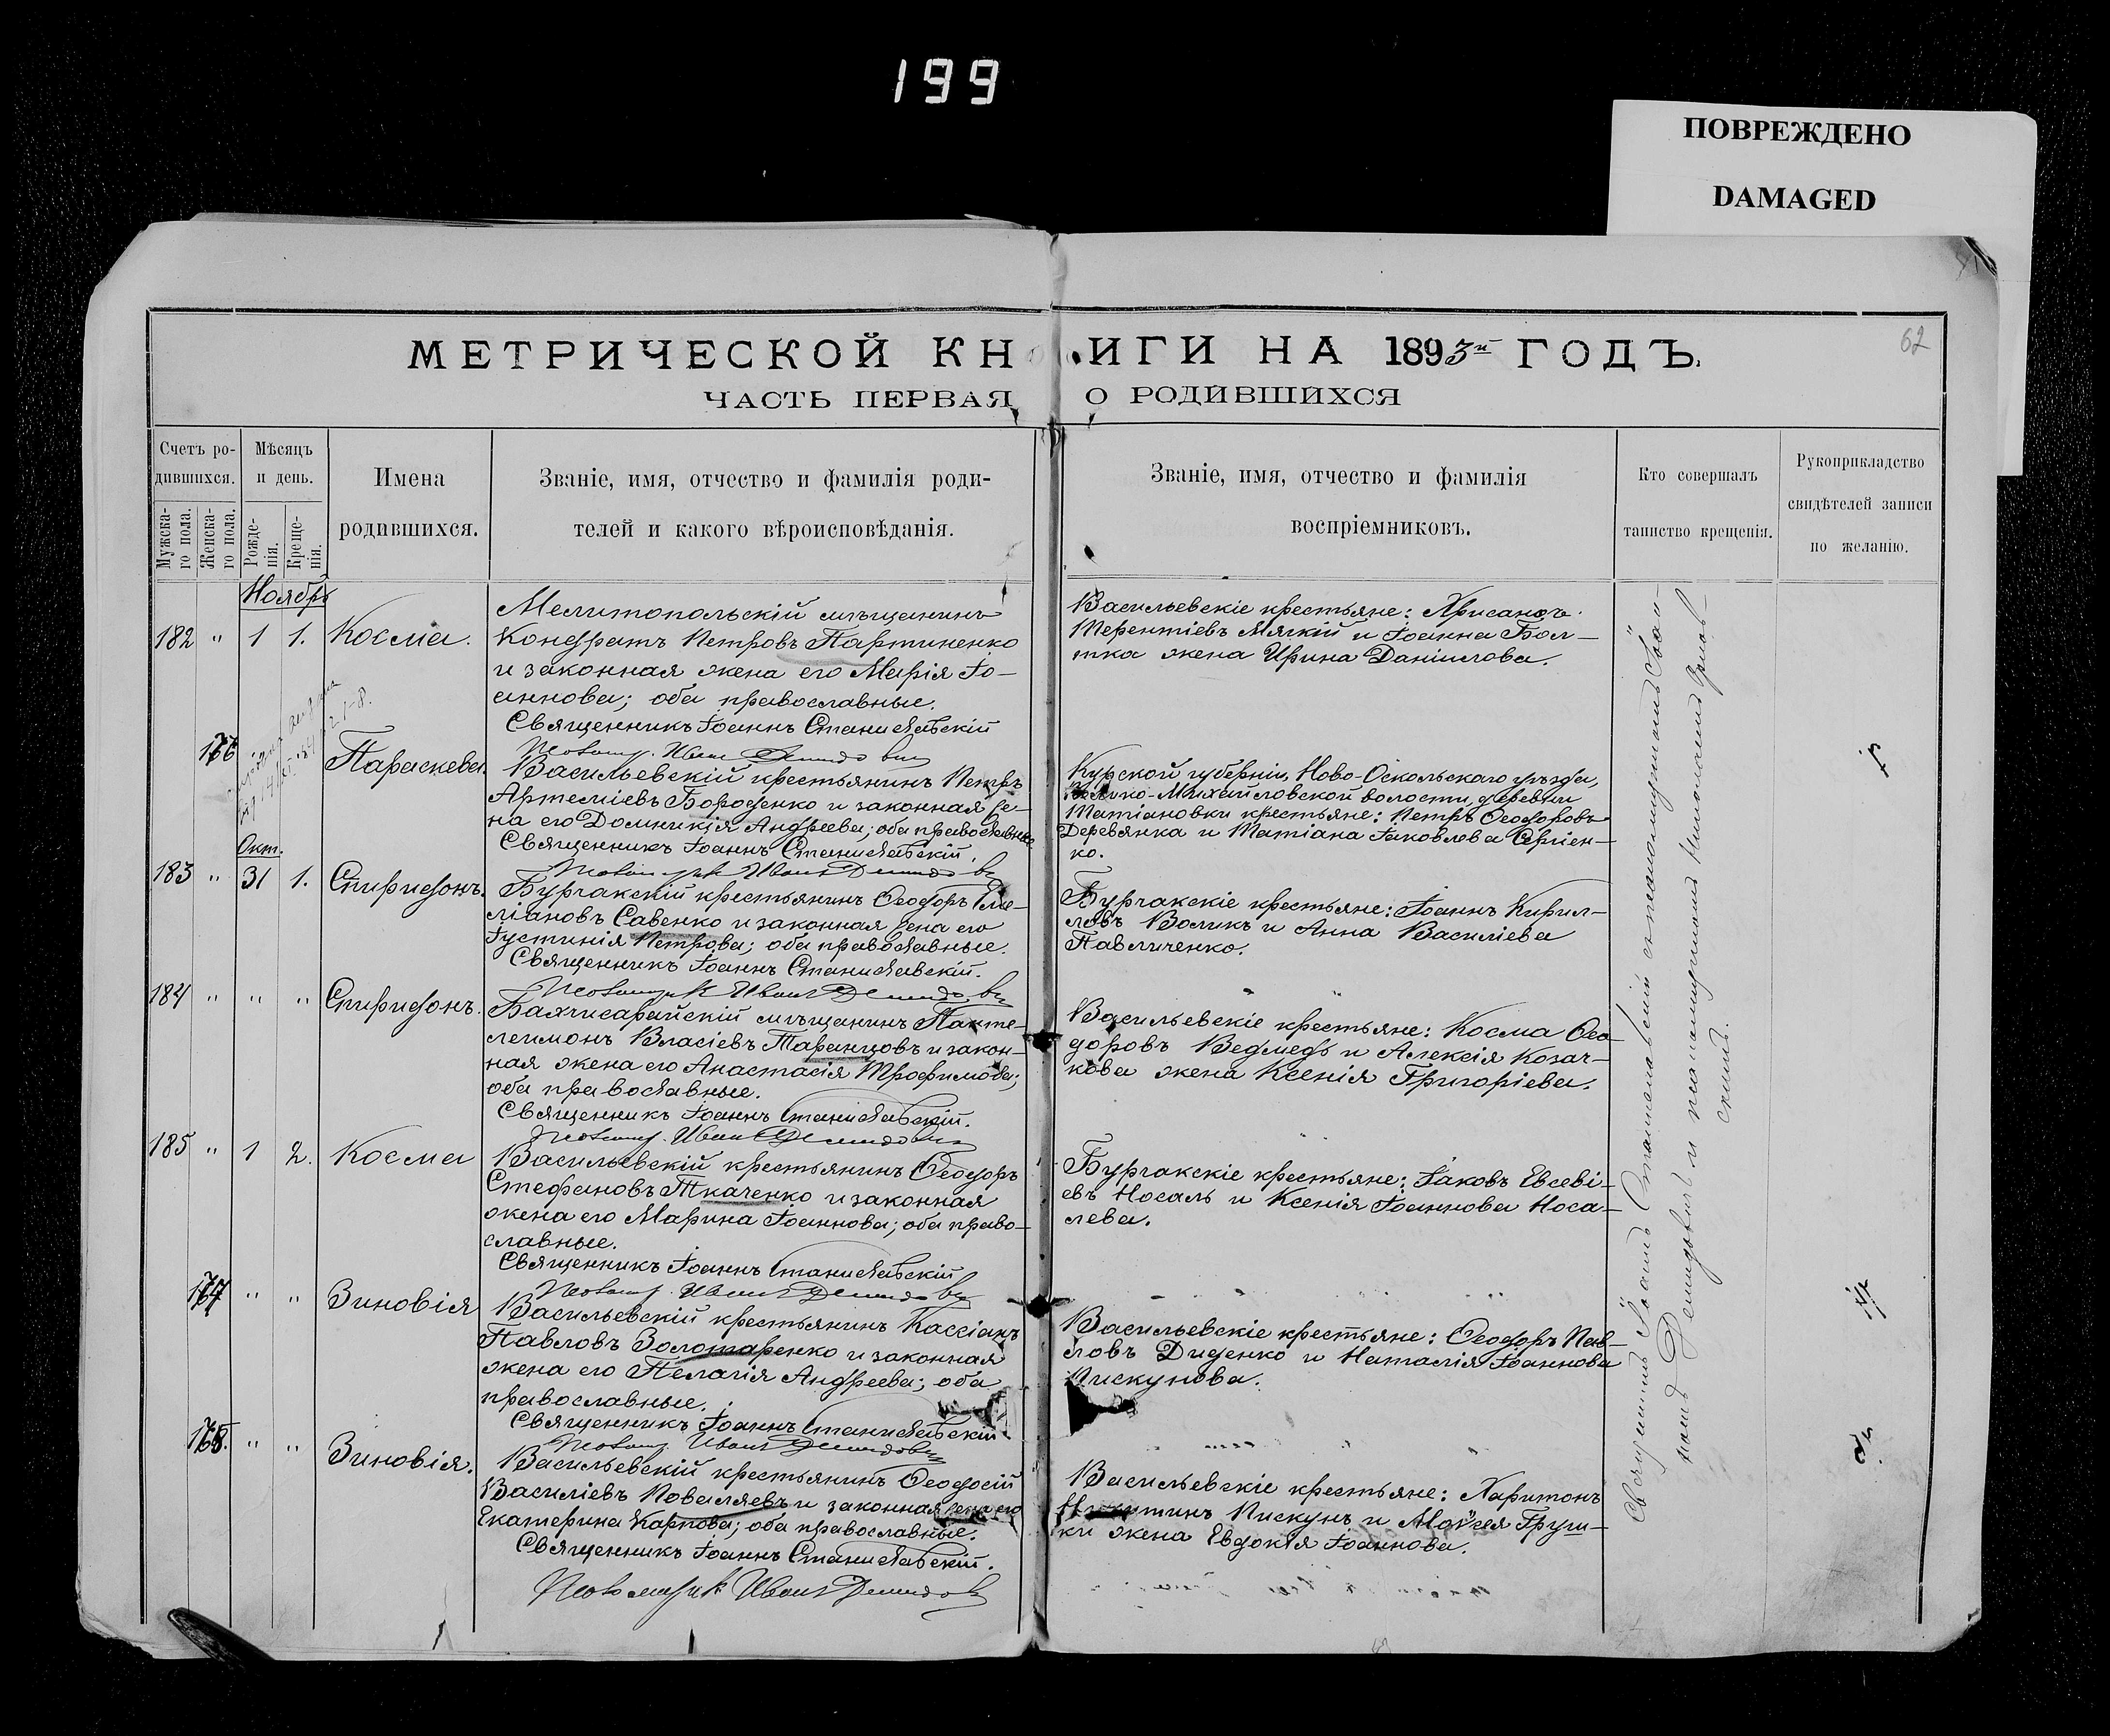 199
ПОВРЕЖДЕНО
DAMAGED
62
МЕТРИЧЕСКОЙ КНИГИ НА 1893й ГОДЪ.
ЧАСТЬ ПЕРВАЯ О РОДИВШИХСЯ
Счетъ ро-
дившихся.
Мужска-
го пола.
Женска-
го пола.
Мѣсяцъ
и день.
Рожде-
нія.
Креще-
нія.
Имена
родившихся.
Званіе, имя, отчество и фамилія роди-
телей и какого вѣроисповѣданія.
Званіе, имя, отчество и фамилія
воспріемниковъ.
Кто совершалъ
таинство крещенія.
Рукоприкладство
свидѣтелей записи
по желанію.
Ноябрь
182 " 1 1. Косма.
Мелитопольскій мѣщанинъ
Кондратъ Петровъ Партиненко
и законная жена его Марія Іо-
аннова; оба православные.
Священникъ Іоаннъ Станиславскій
Псаломщ. Иванъ Демидовъ
Васильевскіе крестьяне: Хрисанфъ
Терентіевъ Мягкій и Іоанна Бол-
тка жена Ирина Даніилова.
Параскева.
Васильевскій крестьянинъ Петръ
Артеміевъ Бороденко и законная же-
на его Домникія Андреева; оба православные
Священникъ Іоаннъ Станиславскій.
Псаломщикъ Иванъ Демидовъ
Курской губерніи, Ново-Оскольскаго уѣзда,
Велико-Михайловской волости, деревни
Матіановки крестьяне: Петръ Ѳеодоровъ
Деревянка и Матіана Іаковлева Сергіен-
ко.
Окт.
183 " 31 1. Спиридонъ.
Бурчакскій крестьянинъ Ѳеодоръ Еме-
ліановъ Савенко и законная жена его
Іустинія Петрова; оба православные.
Священникъ Іоаннъ Станиславскій.
Псаломщикъ Иванъ Демидовъ
Бурчакскіе крестьяне: Іоаннъ Кирил-
ловъ Воликъ и Анна Василіева
Павличенко.
184 " " " Спиридонъ.
Бахчисарайскій мѣщанинъ Панте-
леимонъ Власіевъ Таранцовъ и закон-
ная жена его Анастасія Трофимова;
оба православные.
Священникъ Іоаннъ Станиславскій.
Псаломщ. Иванъ Демидовъ
Васильевскіе крестьяне: Косма Ѳео-
доровъ Ведмедь и Алексія Козач-
кова жена Ксенія Григоріева.
185 " 1 2. Косма
Васильевскій крестьянинъ Ѳеодоръ
Стефановъ Ткаченко и законная
жена его Марина Іоаннова; оба право-
славные.
Священникъ Іоаннъ Станиславскій
Псаломщ. Иванъ Демидовъ
Бурчакскіе крестьяне: Іаковъ Евсеві-
евъ Носаль и Ксенія Іоаннова Носа-
лева.
" " Зиновія
Васильевскій крестьянинъ Кассіанъ
Павловъ Золотаренко и законная
жена его Пелагія Андреева; оба
православные.
Священникъ Іоаннъ Станиславскій
Псаломщ. Иванъ Демидовъ
Васильевскіе крестьяне: Ѳеодоръ Пав-
ловъ Диденко и Наталія Іоаннова
Пискунова.
" " Зиновія.
Васильевскій крестьянинъ Ѳеодосій
Василіевъ Поваляевъ и законная жена его
Екатерина Карпова; оба православные.
Священникъ Іоаннъ Станиславскій.
Псаломщикъ Иванъ Демидовъ
Васильевскіе крестьяне: Харитонъ
Никитинъ Пискунъ и Моѵсея Груш-
ки жена Евдокія Іоаннова.
Священникъ Іоаннъ Станиславскій съ псаломщикомъ Іоан-
номъ Демидовымъ и псаломщикомъ Николаемъ